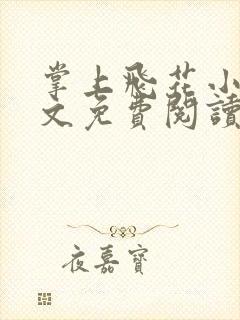 掌上飛花小
文免費閱讀
夜嘉寶